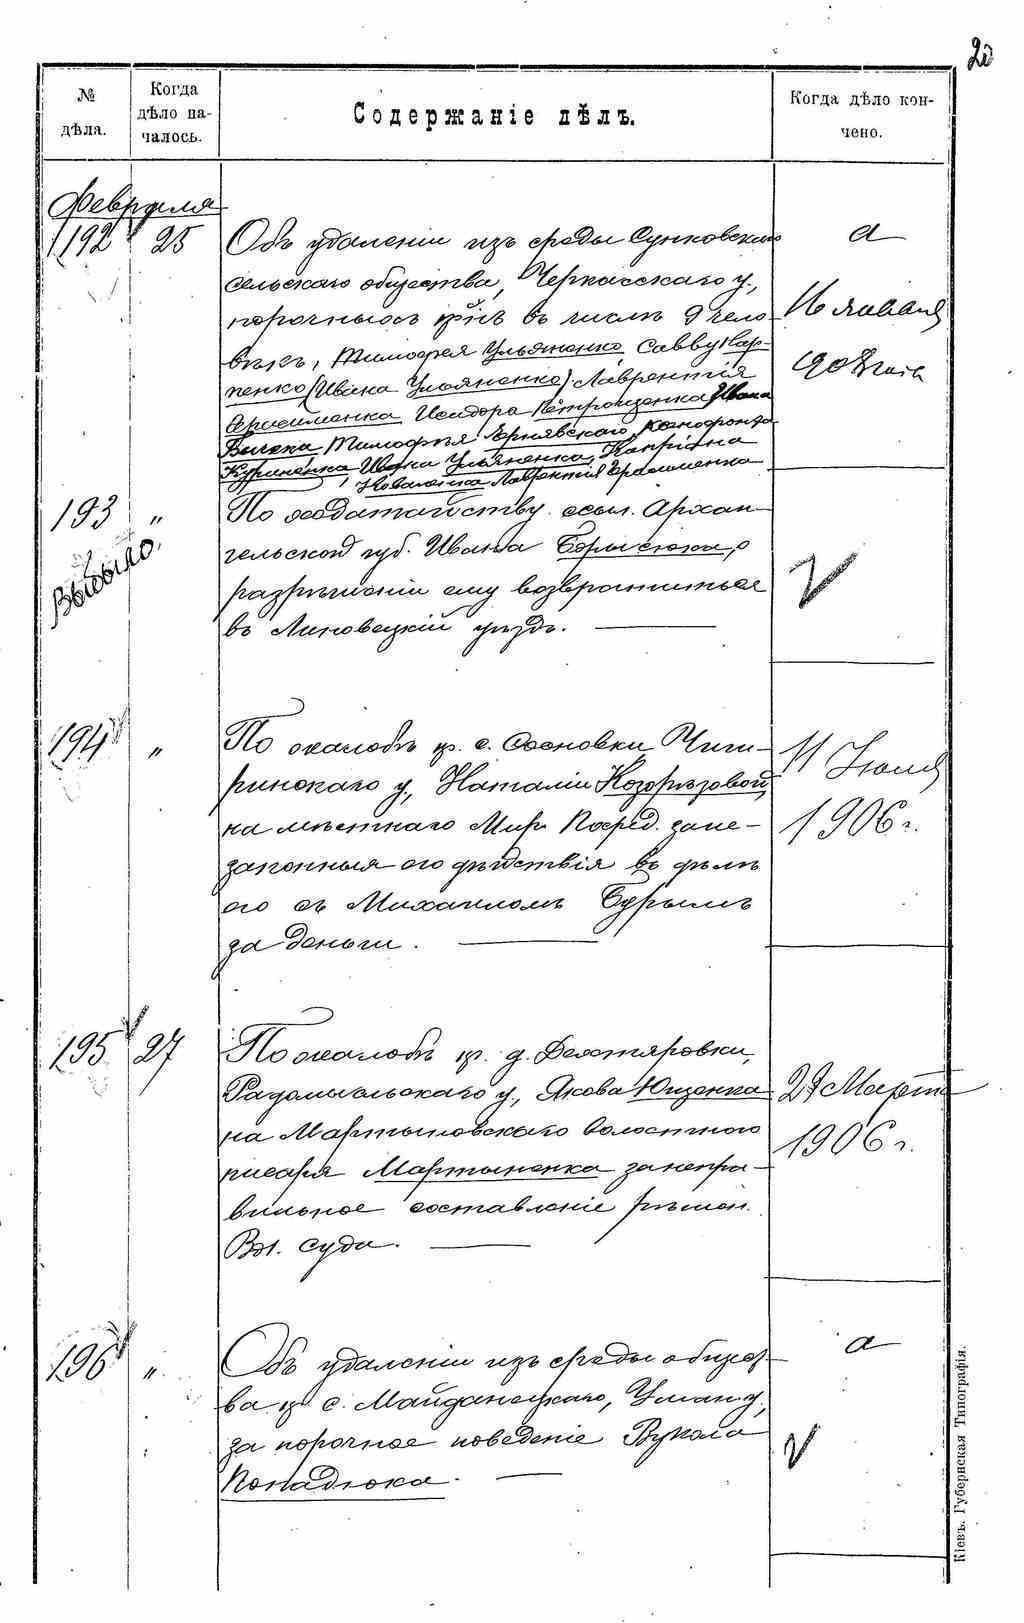 20
№ дѣла.
Когда дѣло началось.
Содержаніе дѣлъ.
Когда дѣло кончено.
Февраля
192 25 Объ удаленіи изъ среды Сунковскаго
сельскаго общества, Черкасскаго у.,
порочныхъ кр. въ числѣ 9 чело-
вѣкъ, Тимофея Ульяненко, Савву Кар-
пенко (Ивана Ульяненко) Лаврентія
Герасименка, Исидора Петрощенка, Ивана
Тимофѣя Чернявскаго, Ксенофонта
Куриненка, Ивана Ульяненка, Капріяна
Коваленка Лаврентія Герасименка
а
16 января
1908 года
193 " По ходатайству ссыл. Архан-
гельской губ. Ивана Борисюка, о
разрѣшеніи ему возвратиться
въ Липовецкій уѣздъ.
Выбыло.
194 " По жалобѣ кр. с. Сосновки Чиги-
ринскаго у., Наталіи Козорѣзовой,
на мѣстнаго Мир. Посред. за не-
законныя его дѣйствія въ дѣлѣ
ея съ Михаиломъ Бурымъ
за деньги.
11 Іюля
1906 г.
195 27 По жалобѣ кр. д. Дехтяровки,
Радомысльскаго у., Якова Ющенка
на Мартыновскаго волостного
писаря Мартыненка за непра-
вильное составленіе рѣшен.
Вол. суда.
27 Марта
1906 г.
196 " Объ удаленіи изъ среды общест-
ва кр. с. Майданецкаго, Уман. у.,
за порочное поведеніе Вукола
Понадюка.
а
Кіевъ. Губернская Типографія.